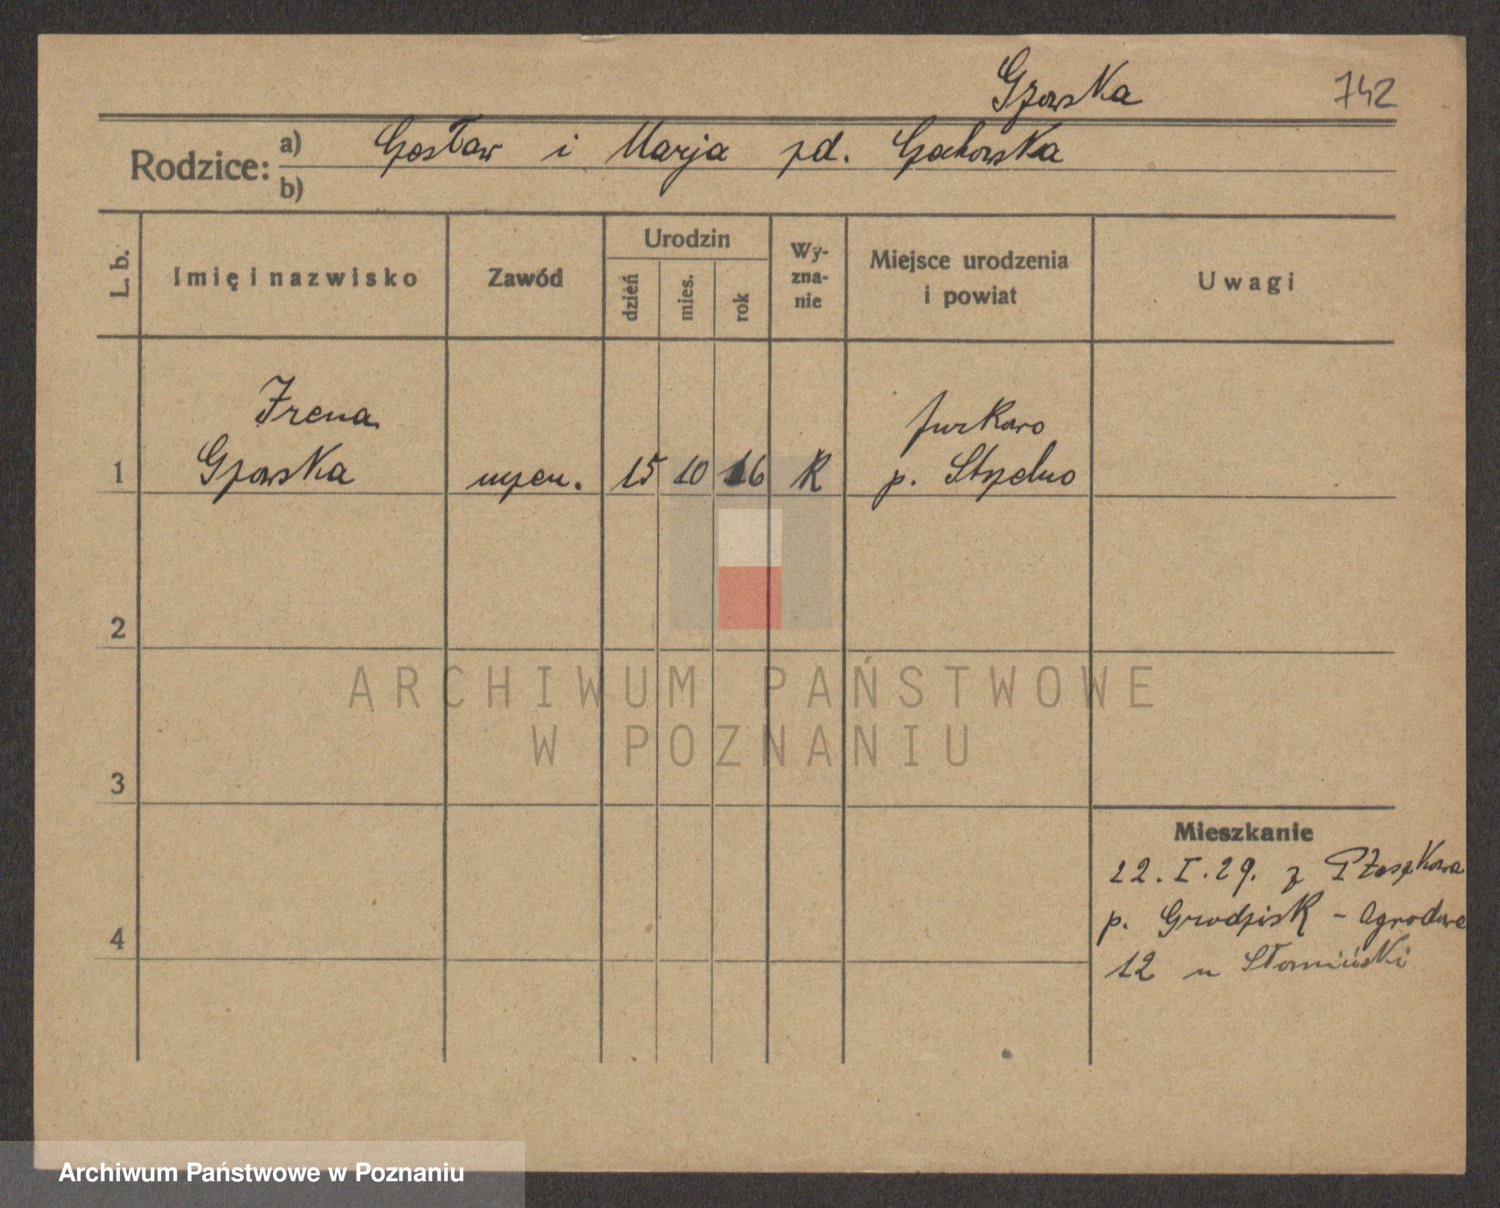 Gzowska 742
Rodzice: a) Gosław i Marja zd. Gąckowska
b)
L. b. Imię i nazwisko Zawód Urodzin dzień mies. rok Wyznanie Miejsce urodzenia i powiat Uwagi
Irena
Gzowska
1 uczen. 15 10 16 K
Jurkowo
p. Strzelno
2
3
4
Mieszkanie
22. I. 29. z
p. Grodzisk - Ogrodowa
12 u Słomiński
ARCHIWUM PAŃSTWOWE
W POZNANIU
Archiwum Państwowe w Poznaniu